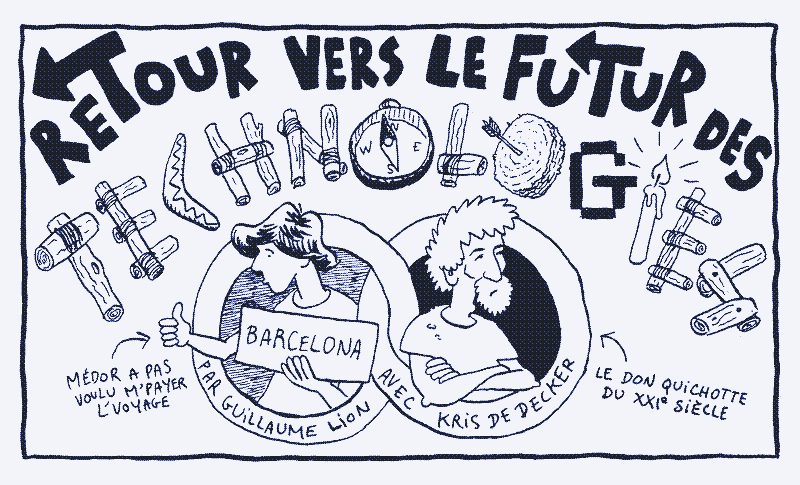 RETOUR VERS LE FUTUR DES
TECHNOLOGIES
N
W E
S
BARCELONA
MÉDOR A PAS
VOULU M'PAYER
L'VOYAGE
PAR GUILLAUME LION
AVEC KRIS DE DECKER
LE DON QUICHOTTE
DU XXIe SIÈCLE